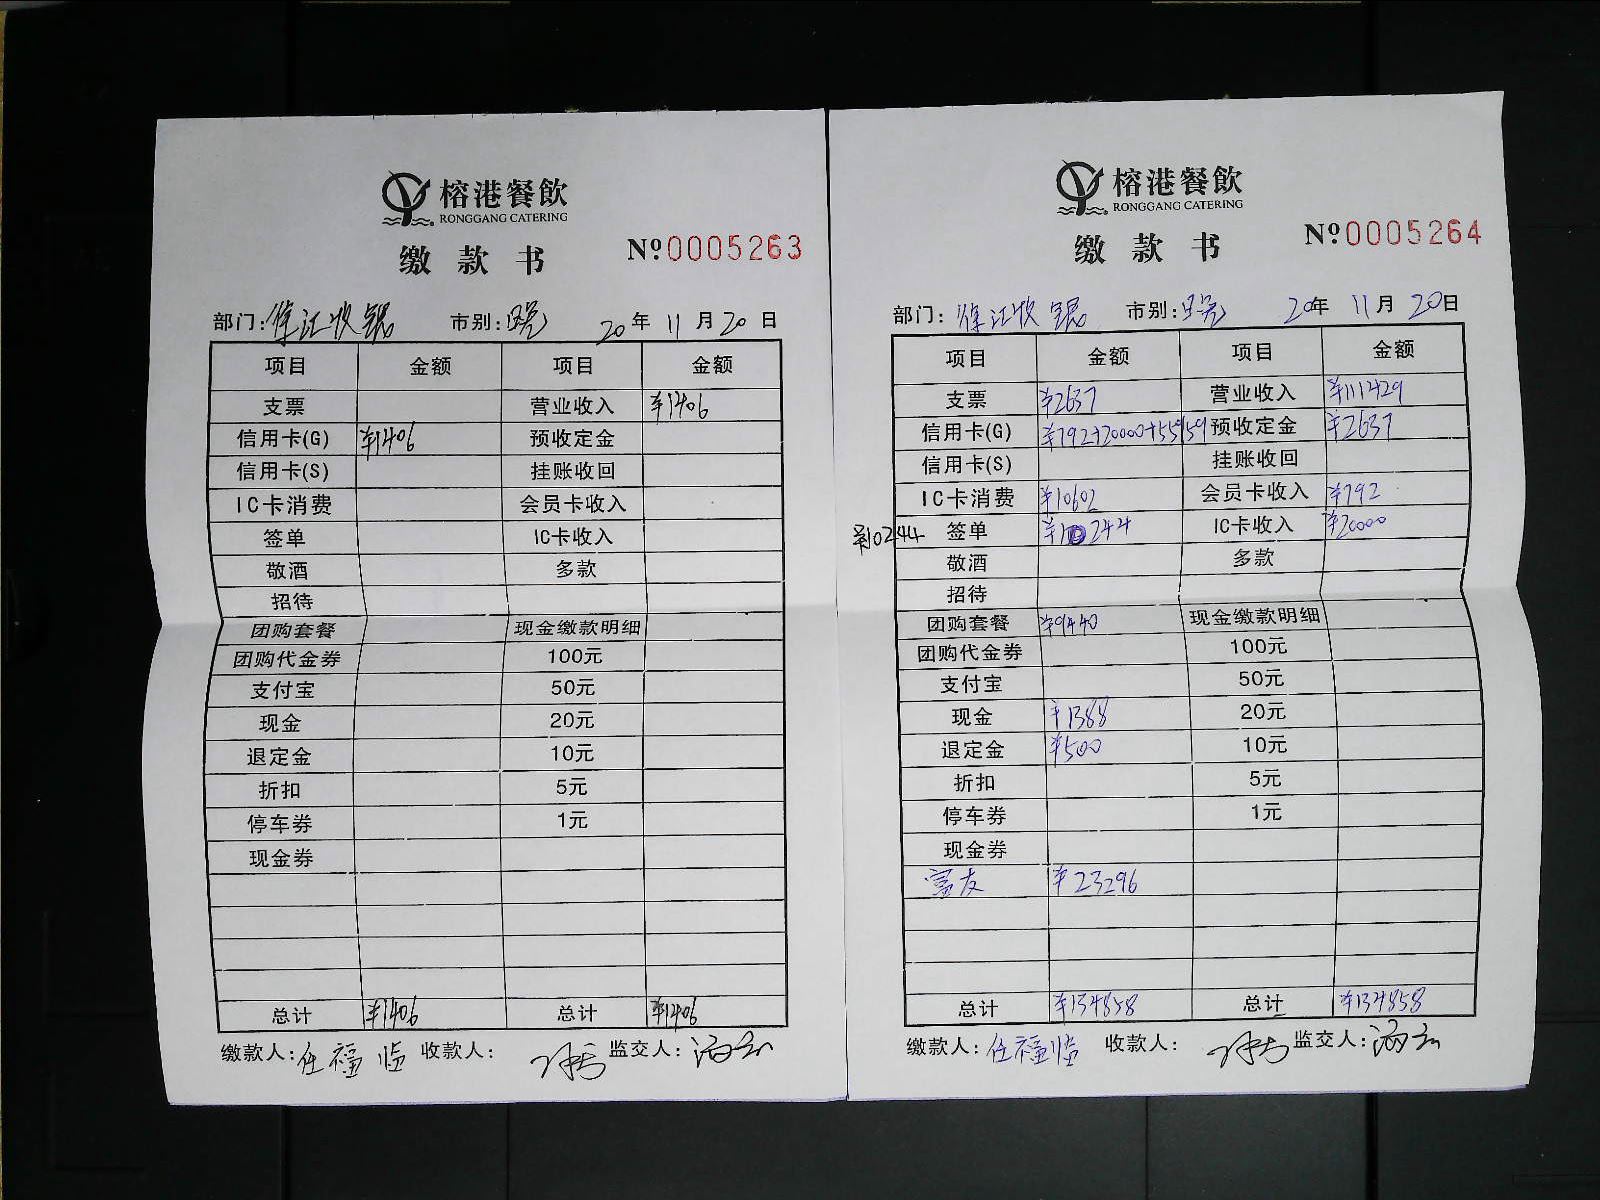 榕港餐飲
RONGGANG CATERING
缴款书
№0005263
部门:徐汇收银 市别: 20年 11月 20日
项目 金额 项目 金额
支票 营业收入 ¥1406
信用卡(G) ¥1406 预收定金
信用卡(S) 挂账收回
IC卡消费 会员卡收入
签单 IC卡收入
敬酒 多款
招待
团购套餐 现金缴款明细
团购代金券 100元
支付宝 50元
现金 20元
退定金 10元
折扣 5元
停车券 1元
现金券
总计 ¥1406 总计 ¥1406
缴款人:任福临 收款人: 监交人:
榕港餐飲
RONGGANG CATERING
缴款书
№0005264
部门:徐汇收银 市别: 20年 11月 20日
项目 金额 项目 金额
支票 ¥2637 营业收入 ¥111429
信用卡(G) ¥792+20000+55959 预收定金 ¥2637
信用卡(S) 挂账收回
IC卡消费 ¥10602 会员卡收入 ¥792
¥10244 签单 ¥10244 IC卡收入 ¥20000
敬酒 多款
招待
团购套餐 ¥9440 现金缴款明细
团购代金券 100元
支付宝 50元
现金 ¥1388 20元
退定金 ¥500 10元
折扣 5元
停车券 1元
现金券
富友 ¥23296
总计 ¥134858 总计 ¥134858
缴款人:任福临 收款人: 监交人: